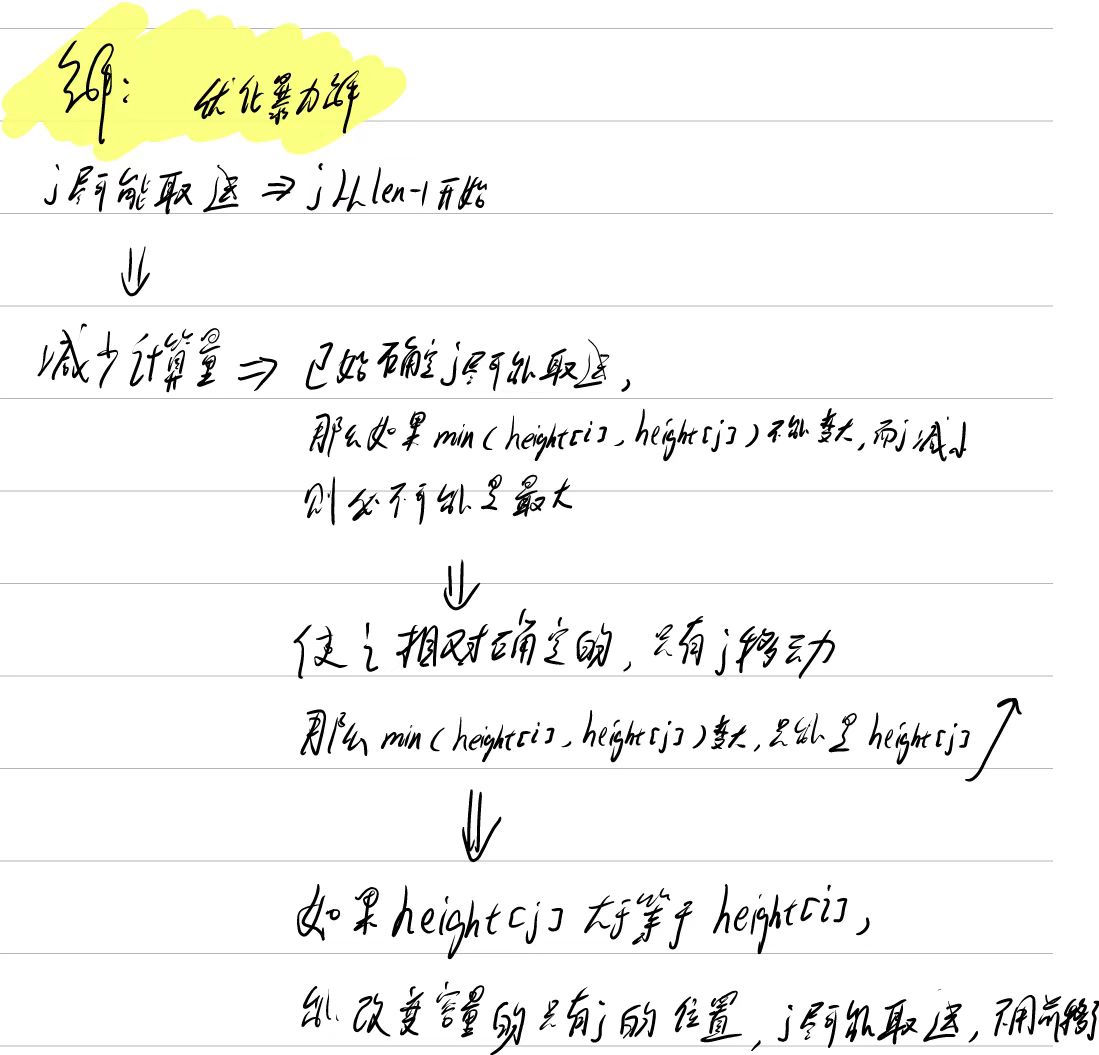 优化暴力解
j尽可能取远 ⇒ j从len-1开始
⇓
减少计算量 ⇒ 已经确定j尽可能取远,
那么如果min(height[i], height[j])不能变大,而j减小
则必不可能是最大
⇓
使i相对确定的,只有j移动
那么min(height[i], height[j])变大,只能是height[j]↗
⇓
如果height[j]大于等于height[i],
能改变容量的只有j的位置,j尽可能取远,不用前移了